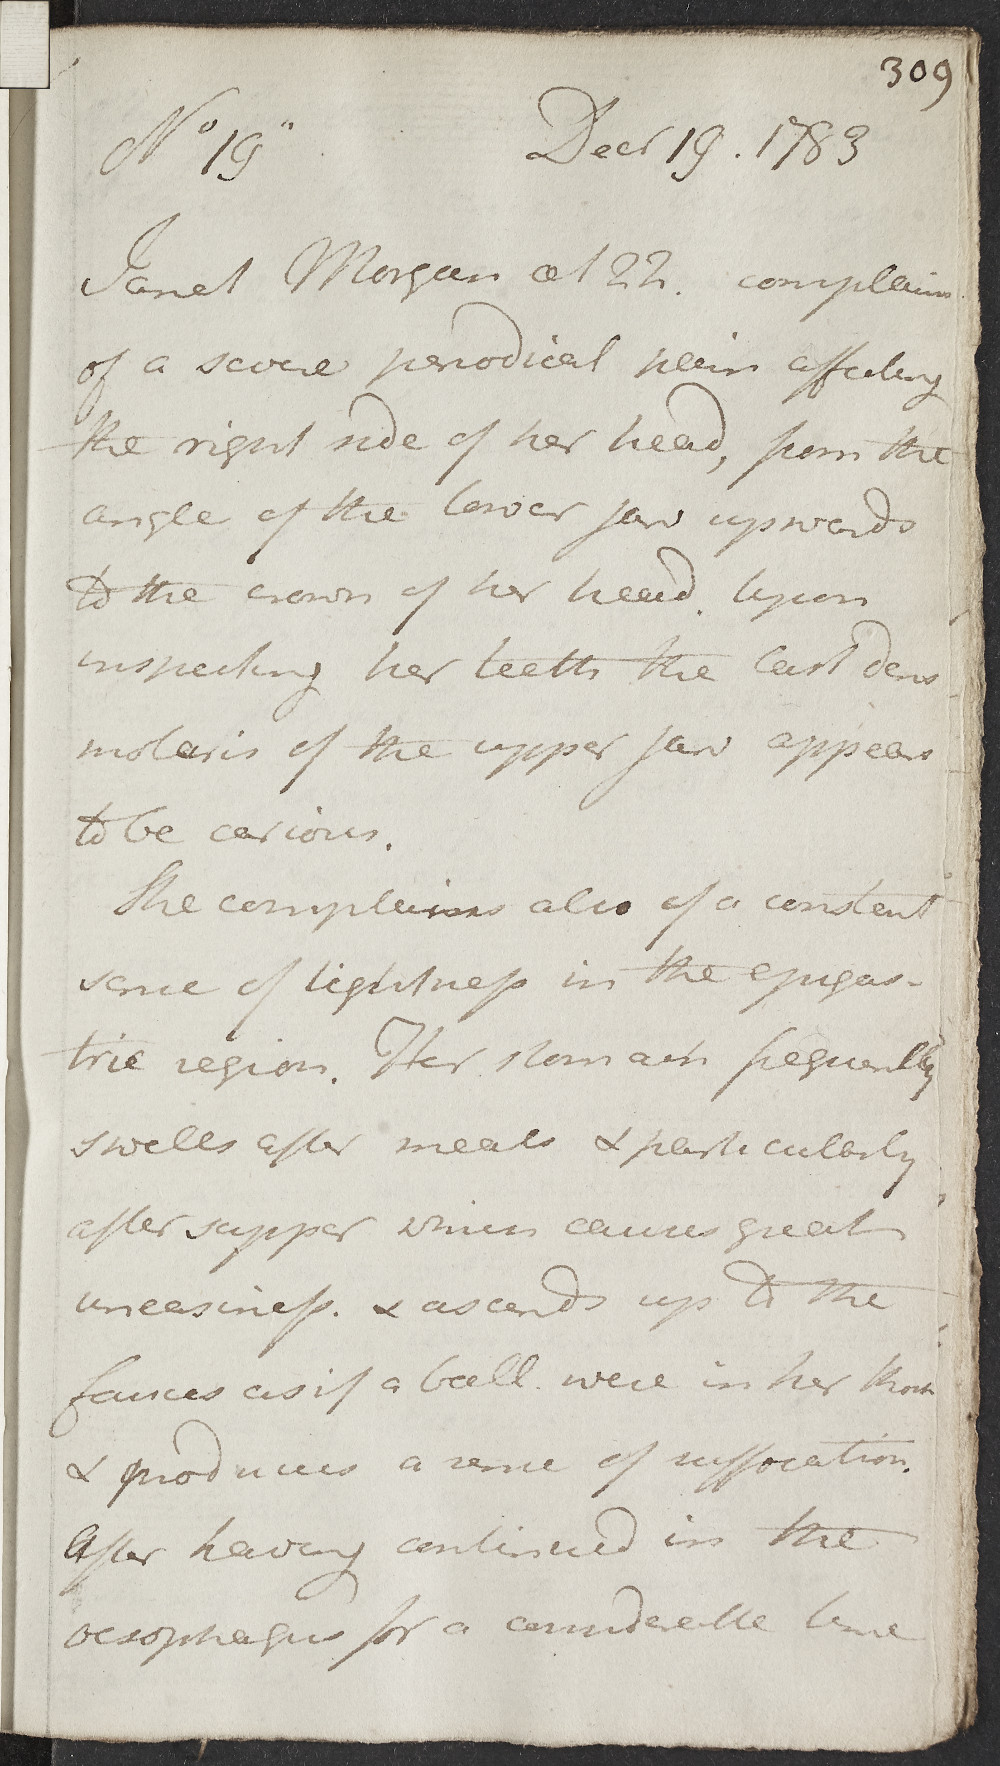 309
No 19" Decr 19. 1783
Janet Morgan æt 22. complains
of a severe periodical pain affecting
the right side of her head, from the
angle of the lower jaw upwards
to the crown of her head. Upon
inspecting her teeth the last dens
molaris of the upper jaw appears
to be carious.
She complains also of a constant
sense of tightness in the epigas-
tric region. Her stomach frequently
swells after meals & particularly
after supper which causes great
uneasiness. & ascends up to the
fauces as if a ball were in her throat
& produces a sense of suffocation.
After having continued in the
oesophagus for a considerable time